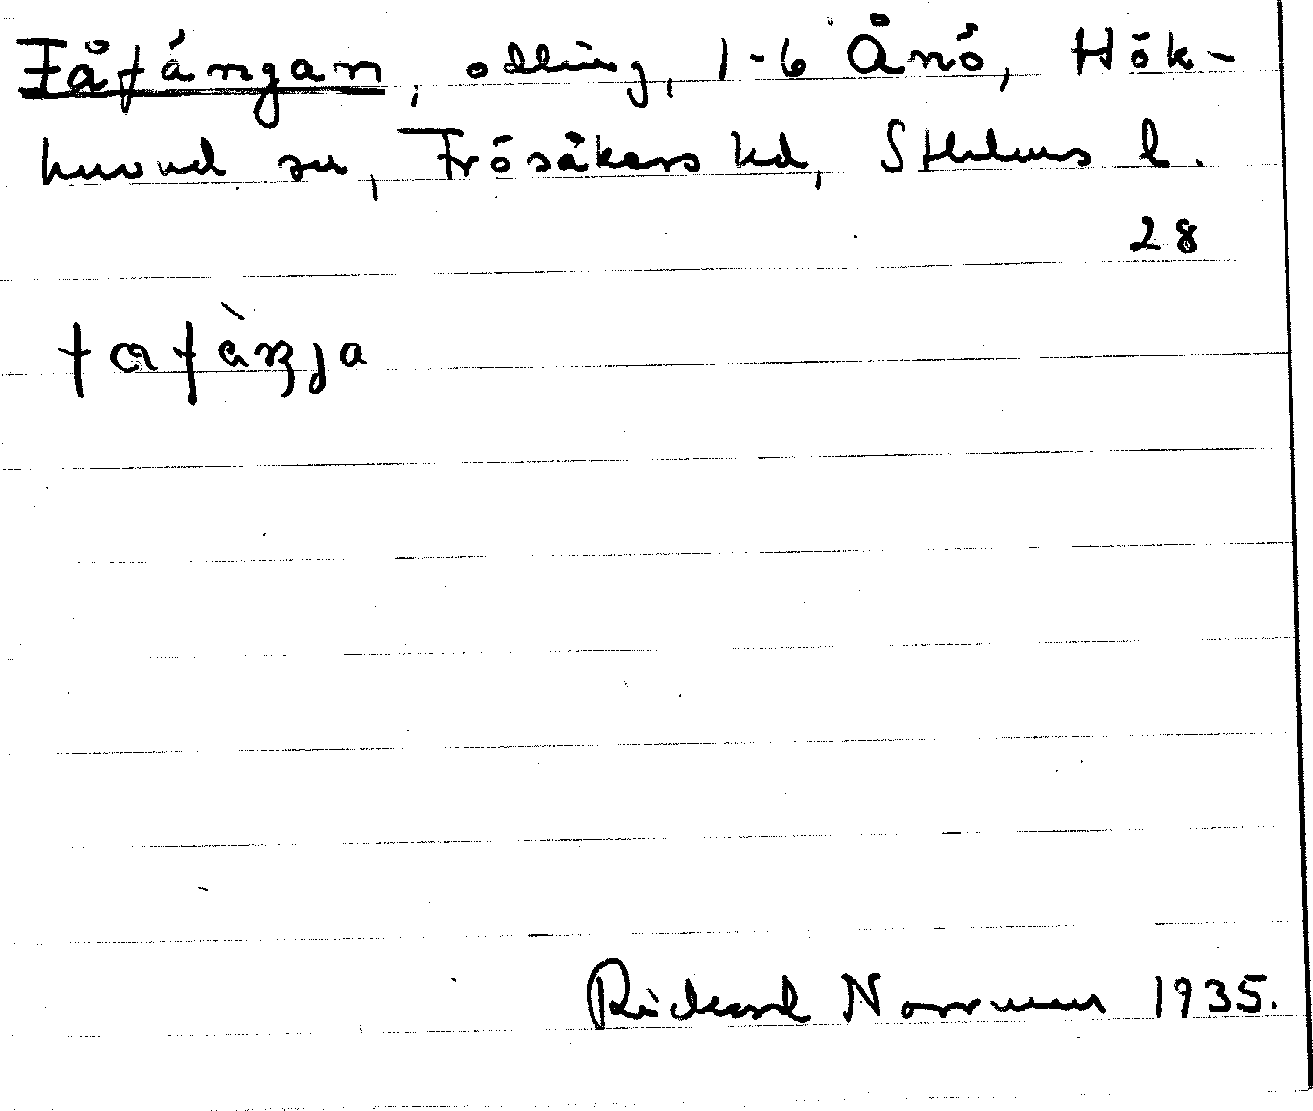 Fåfängan, odling, 1-6 Ånö, Hök-
huvud sn, Frösåkers hd, Sthlms l.
28
fafäŋga
Rickard Norrman 1935.